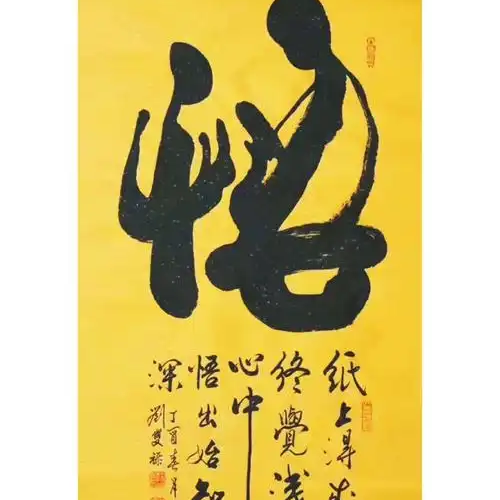 悟
紙上得来
終覺浅
心中
悟出始知
深
丁酉春月